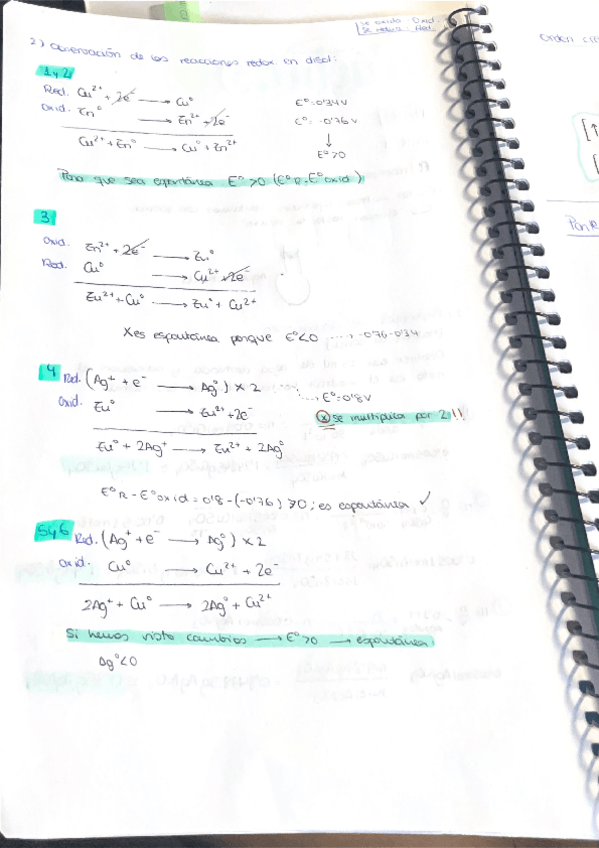 Se oxida Oxid.
Se reduce: Red.
2) Observación de las reacciones redox en disol:
1 y 2
Red. Cu²⁺ + 2e⁻ → Cu⁰ E⁰=0'34V
Oxid. Zn⁰ → Zn²⁺ + 2e⁻ E⁰= -0'76V
Cu²⁺ + Zn⁰ → Cu⁰ + Zn²⁺ ↓
E⁰>0
Para que sea espontánea E⁰>0 (E⁰R - E⁰oxid)
3
Oxid. Zn²⁺ + 2e⁻ → Zn⁰
Red. Cu⁰ → Cu²⁺ + 2e⁻
Zn²⁺ + Cu⁰ → Zn⁰ + Cu²⁺
X es espontánea porque E⁰<0 ....., -0'76-0'34
4
Red. (Ag⁺ + e⁻ → Ag⁰) x 2 ....., E⁰=0'8V
Oxid. Zn⁰ → Zn²⁺ + 2e⁻ X se multiplica por 2!!
Zn⁰ + 2Ag⁺ → Zn²⁺ + 2Ag⁰
E⁰R - E⁰oxid = 0'8 - (-0'76) >0; es espontánea ✓
5 y 6
Red. (Ag⁺ + e⁻ → Ag⁰) x 2
Oxid. Cu⁰ → Cu²⁺ + 2e⁻
2Ag⁺ + Cu⁰ → 2Ag⁰ + Cu²⁺
Si hemos visto cambios → E⁰>0 → espontánea
Ag⁰<0